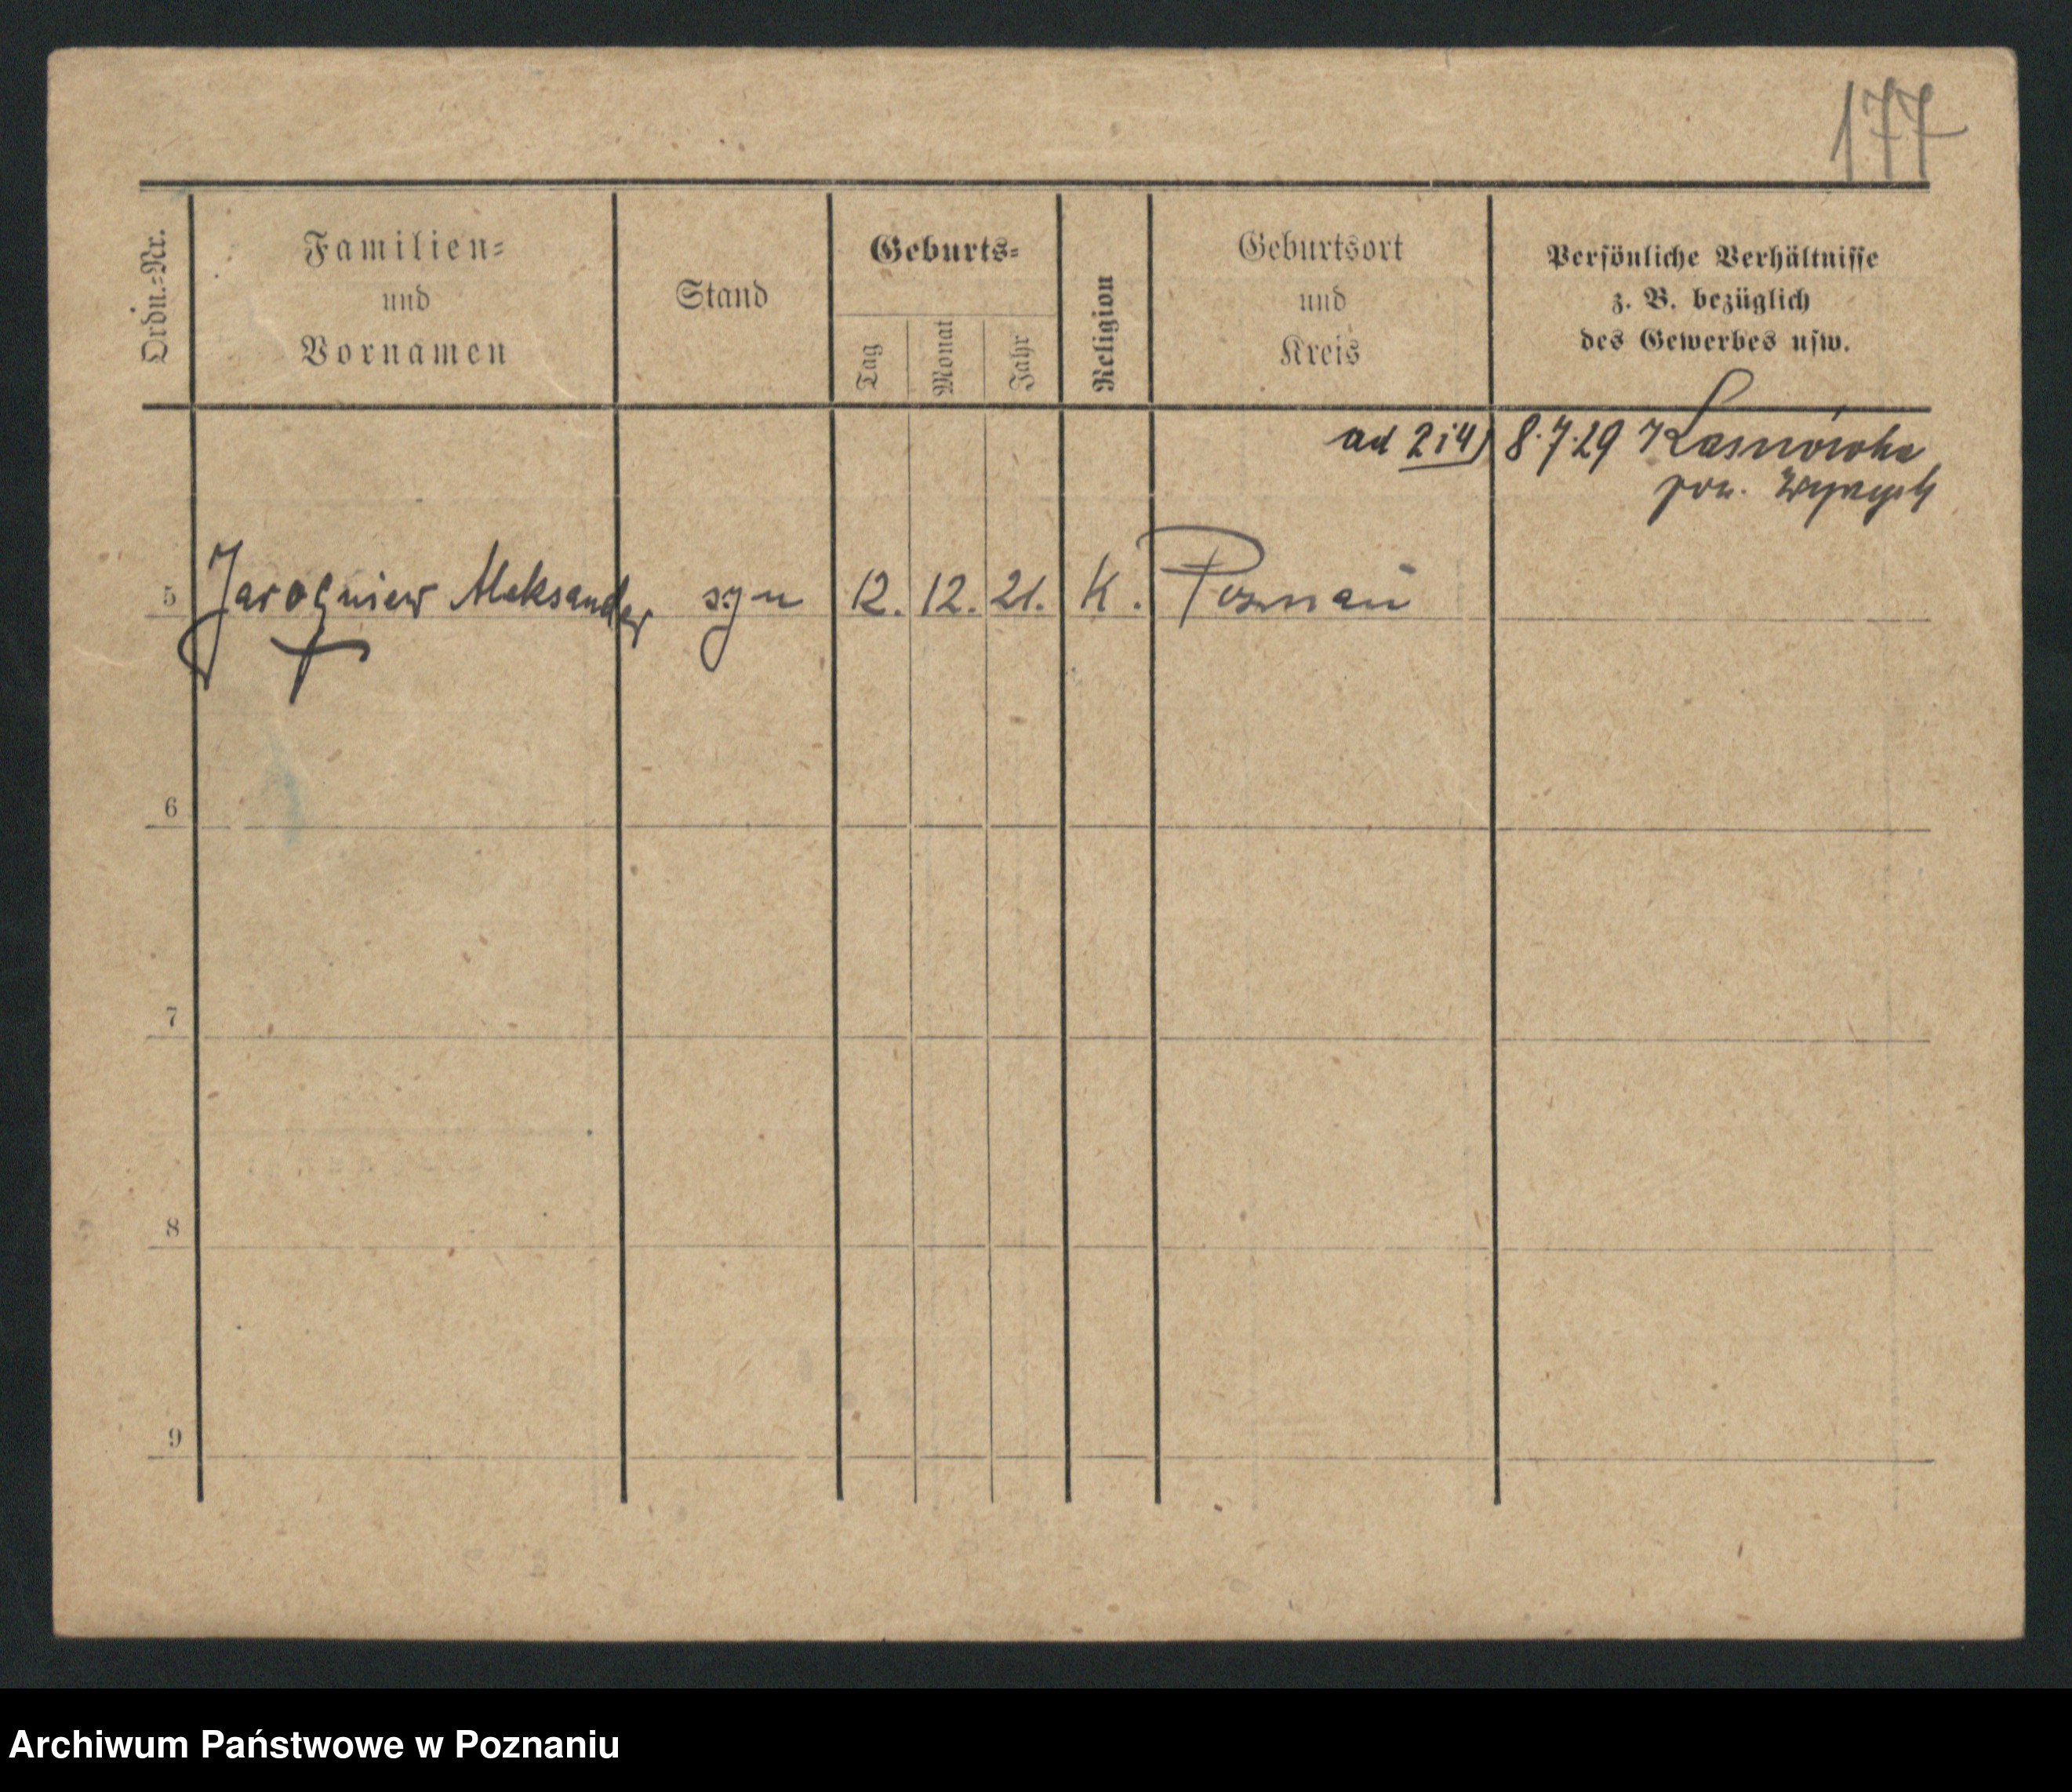 177
Ordn.-Nr.
Familien-
und
Vornamen
Stand
Geburts-
Tag
Monat
Jahr
Religion
Geburtsort
und
Kreis
Persönliche Verhältnisse
z. B. bezüglich
des Gewerbes usw.
ad 2 i 4) 8.7.29
pow. Wyrzysk
5 Jarogniew Aleksander syn 12. 12. 21. K. Poznań
6
7
8
9
Archiwum Państwowe w Poznaniu